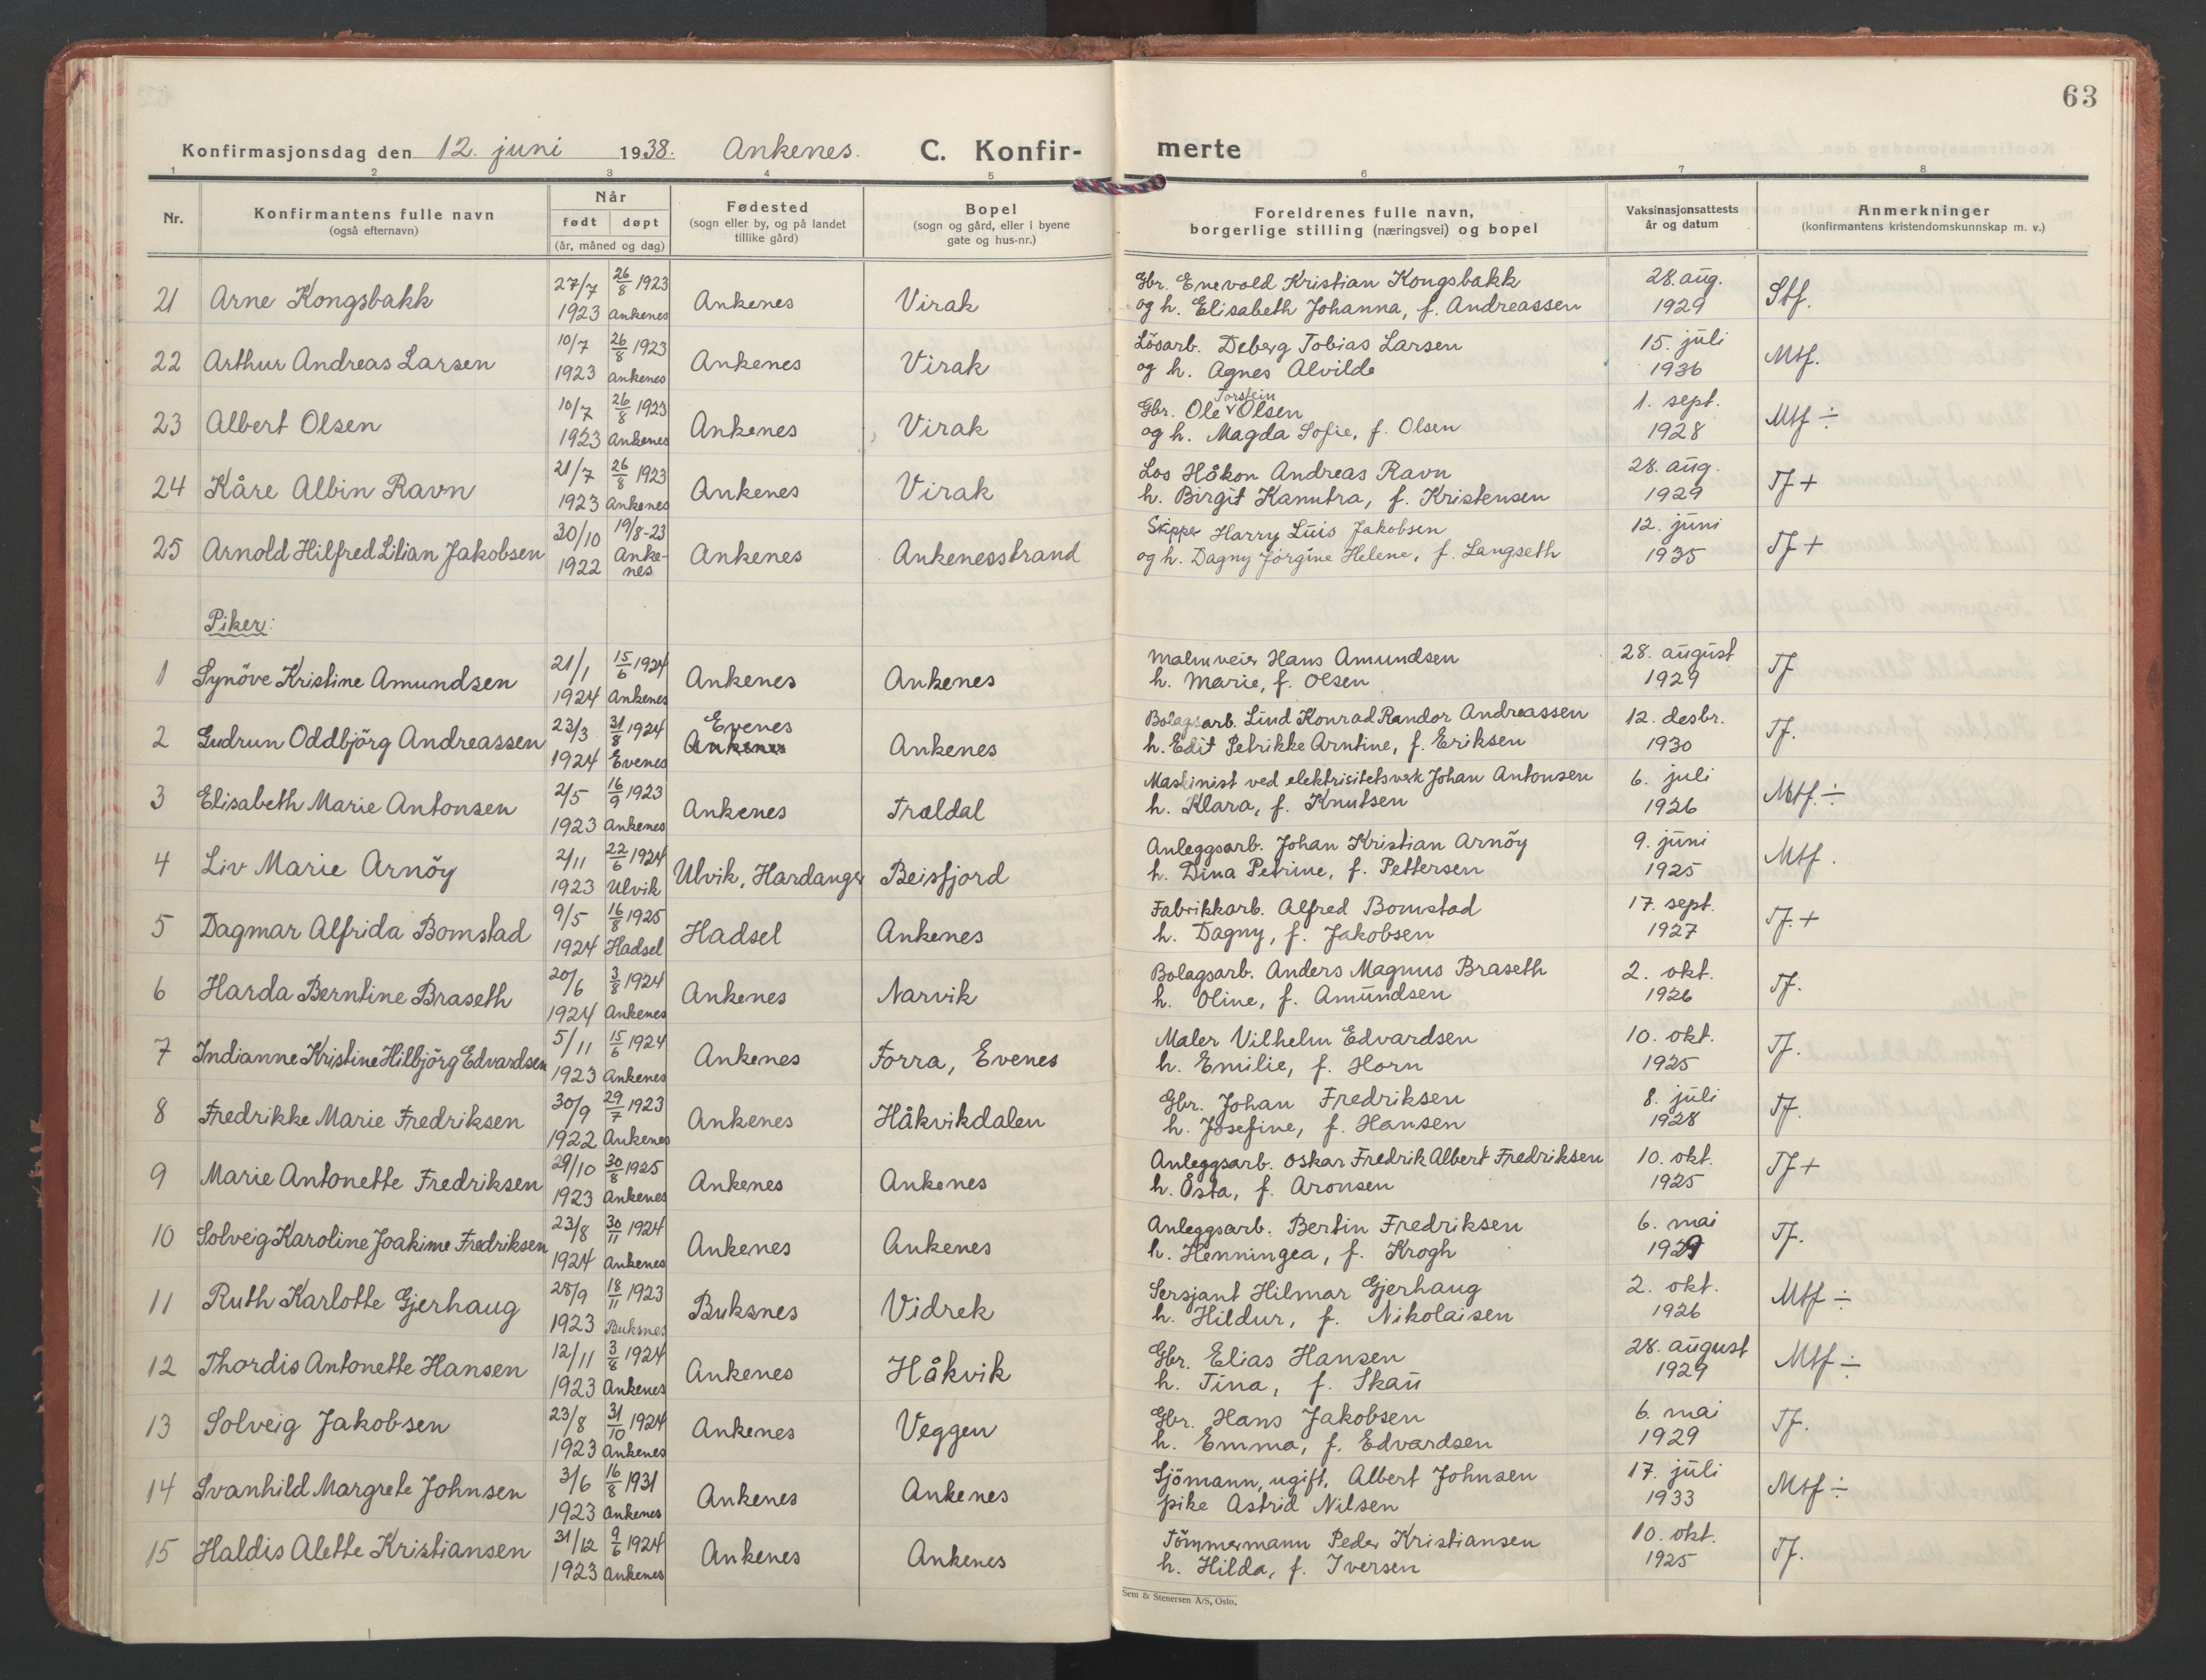 63
Konfirmasjonsdag den 12. juni 1938. Ankenes. C. Konfir- merte
1 2 3 4 5 6 7 8
Nr. Konfirmantens fulle navn (også efternavn) Når født døpt (år, måned og dag) Fødested (sogn eller by, og på landet tillike gård) Bopel (sogn og gård, eller i byene gate og hus-nr.) Foreldrenes fulle navn, borgerlige stilling (næringsvei) og bopel Vaksinasjonsattests år og datum Anmerkninger (konfirmantens kristendomskunnskap m. v.)
21 Arne Kongsbakk 27/7 1923 26/8 1923 Ankenes Ankenes Virak Gbr. Enevold Kristian Kongsbakk 28. aug. Stf.
og h. Elisabeth Johanna, f. Andreassen 1929
22 Arthur Andreas Larsen 10/7 1923 26/8 1923 Ankenes Ankenes Virak Lösarb. Deberg Tobias Larsen 15. juli Mtf.
og h. Agnes Alvilde 1936
23 Albert Olsen 10/7 1923 26/8 1923 Ankenes Ankenes Virak Gbr. Ole Torstein Olsen 1. sept. Mtf ÷
og h. Magda Sofie, f. Olsen 1928
24 Kåre Albin Ravn 21/7 1923 26/8 1923 Ankenes Ankenes Virak Los Håkon Andreas Ravn 28. aug. Tf +
h. Birgit Kanutra, f. Kristensen 1929
25 Arnold Hilfred Lilian Jakobsen 30/10 1922 19/8-23 Ankenes Ankenes Ankenesstrand Skipper Harry Luis Jakobsen 12. juni Tf +
og h. Dagny Jörgine Helene, f. Langseth 1935
Piker:
1 Synöve Kristine Amundsen 21/1 1924 15/6 1924 Ankenes Ankenes Ankenes Malmveier Hans Amundsen 28. august Tf
h. Marie, f. Olsen 1929
2 Gudrun Oddbjörg Andreassen 23/3 1924 31/8 1924 Evenes Evenes Ankenes Ankenes Bolagsarb. Lind Konrad Randor Andreassen 12. desbr. Tf.
h. Edit Petrikke Arntine, f. Eriksen 1930
3 Elisabeth Marie Antonsen 2/5 1923 16/9 1923 Ankenes Ankenes Trældal Maskinist ved elektrisitetsverk Johan Antonsen 6. juli Mtf. ÷
h. Klara, f. Knutsen 1926
4 Liv Marie Arnöy 2/11 1923 22/6 1924 Ulvik Ulvik, Hardanger Beisfjord Anleggsarb. Johan Kristian Arnöy 9. juni Mtf.
h. Dina Petrine, f. Pettersen 1925
5 Dagmar Alfrida Bomstad 9/5 1924 16/8 1925 Hadsel Hadsel Ankenes Fabrikkarb. Alfred Bomstad 17. sept. Tf. +
h. Dagny, f. Jakobsen 1927
6 Harda Berntine Braseth 20/6 1924 3/8 1924 Ankenes Ankenes Narvik Bolagsarb. Anders Magnus Braseth 2. okt. Tf.
h. Oline, f. Amundsen 1926
7 Indianne Kristine Hilbjörg Edvardsen 5/11 1923 15/6 1924 Ankenes Ankenes Forra, Evenes Maler Vilhelm Edvardsen 10. okt. Tf.
h. Emilie, f. Horn 1925
8 Fredrikke Marie Fredriksen 30/9 1922 29/7 1923 Ankenes Ankenes Håkvikdalen Gbr. Johan Fredriksen 8. juli Tf.
h. Josefine, f. Hansen 1928
9 Marie Antonette Fredriksen 29/10 1923 30/8 1925 Ankenes Ankenes Ankenes Anleggsarb. Oskar Fredrik Albert Fredriksen 10. okt. Tf +
h. Åsta, f. Aronsen 1925
10 Solveig Karoline Joakime Fredriksen 23/8 1924 30/11 1924 Ankenes Ankenes Ankenes Anleggsarb. Bertin Fredriksen 6. mai Tf.
h. Henningea, f. Krogh 1929
11 Ruth Karlotte Gjerhaug 28/9 1923 18/11 1923 Buksnes Buksnes Vidrek Sersjant Hilmar Gjerhaug 2. okt. Mtf ÷
h. Hildur, f. Nikolaisen 1926
12 Thordis Antonette Hansen 12/11 1923 3/8 1924 Ankenes Ankenes Håkvik Gbr. Elias Hansen 28. august Mtf ÷
h. Tina, f. Skau 1929
13 Solveig Jakobsen 23/8 1923 31/10 1924 Ankenes Ankenes Veggen Gbr. Hans Jakobsen 6. mai Tf.
h. Emma, f. Edvardsen 1929
14 Svanhild Margrete Johnsen 3/6 1923 16/8 1931 Ankenes Ankenes Ankenes Sjömann, ugift, Albert Johnsen 17. juli Mtf ÷
pike Astrid Nilsen 1933
15 Haldis Alette Kristiansen 31/12 1923 9/6 1924 Ankenes Ankenes Ankenes Tömmermann Peder Kristiansen 10. okt. Tf.
h. Hilda, f. Iversen 1925
Sem & Stenersen A/S, Oslo.